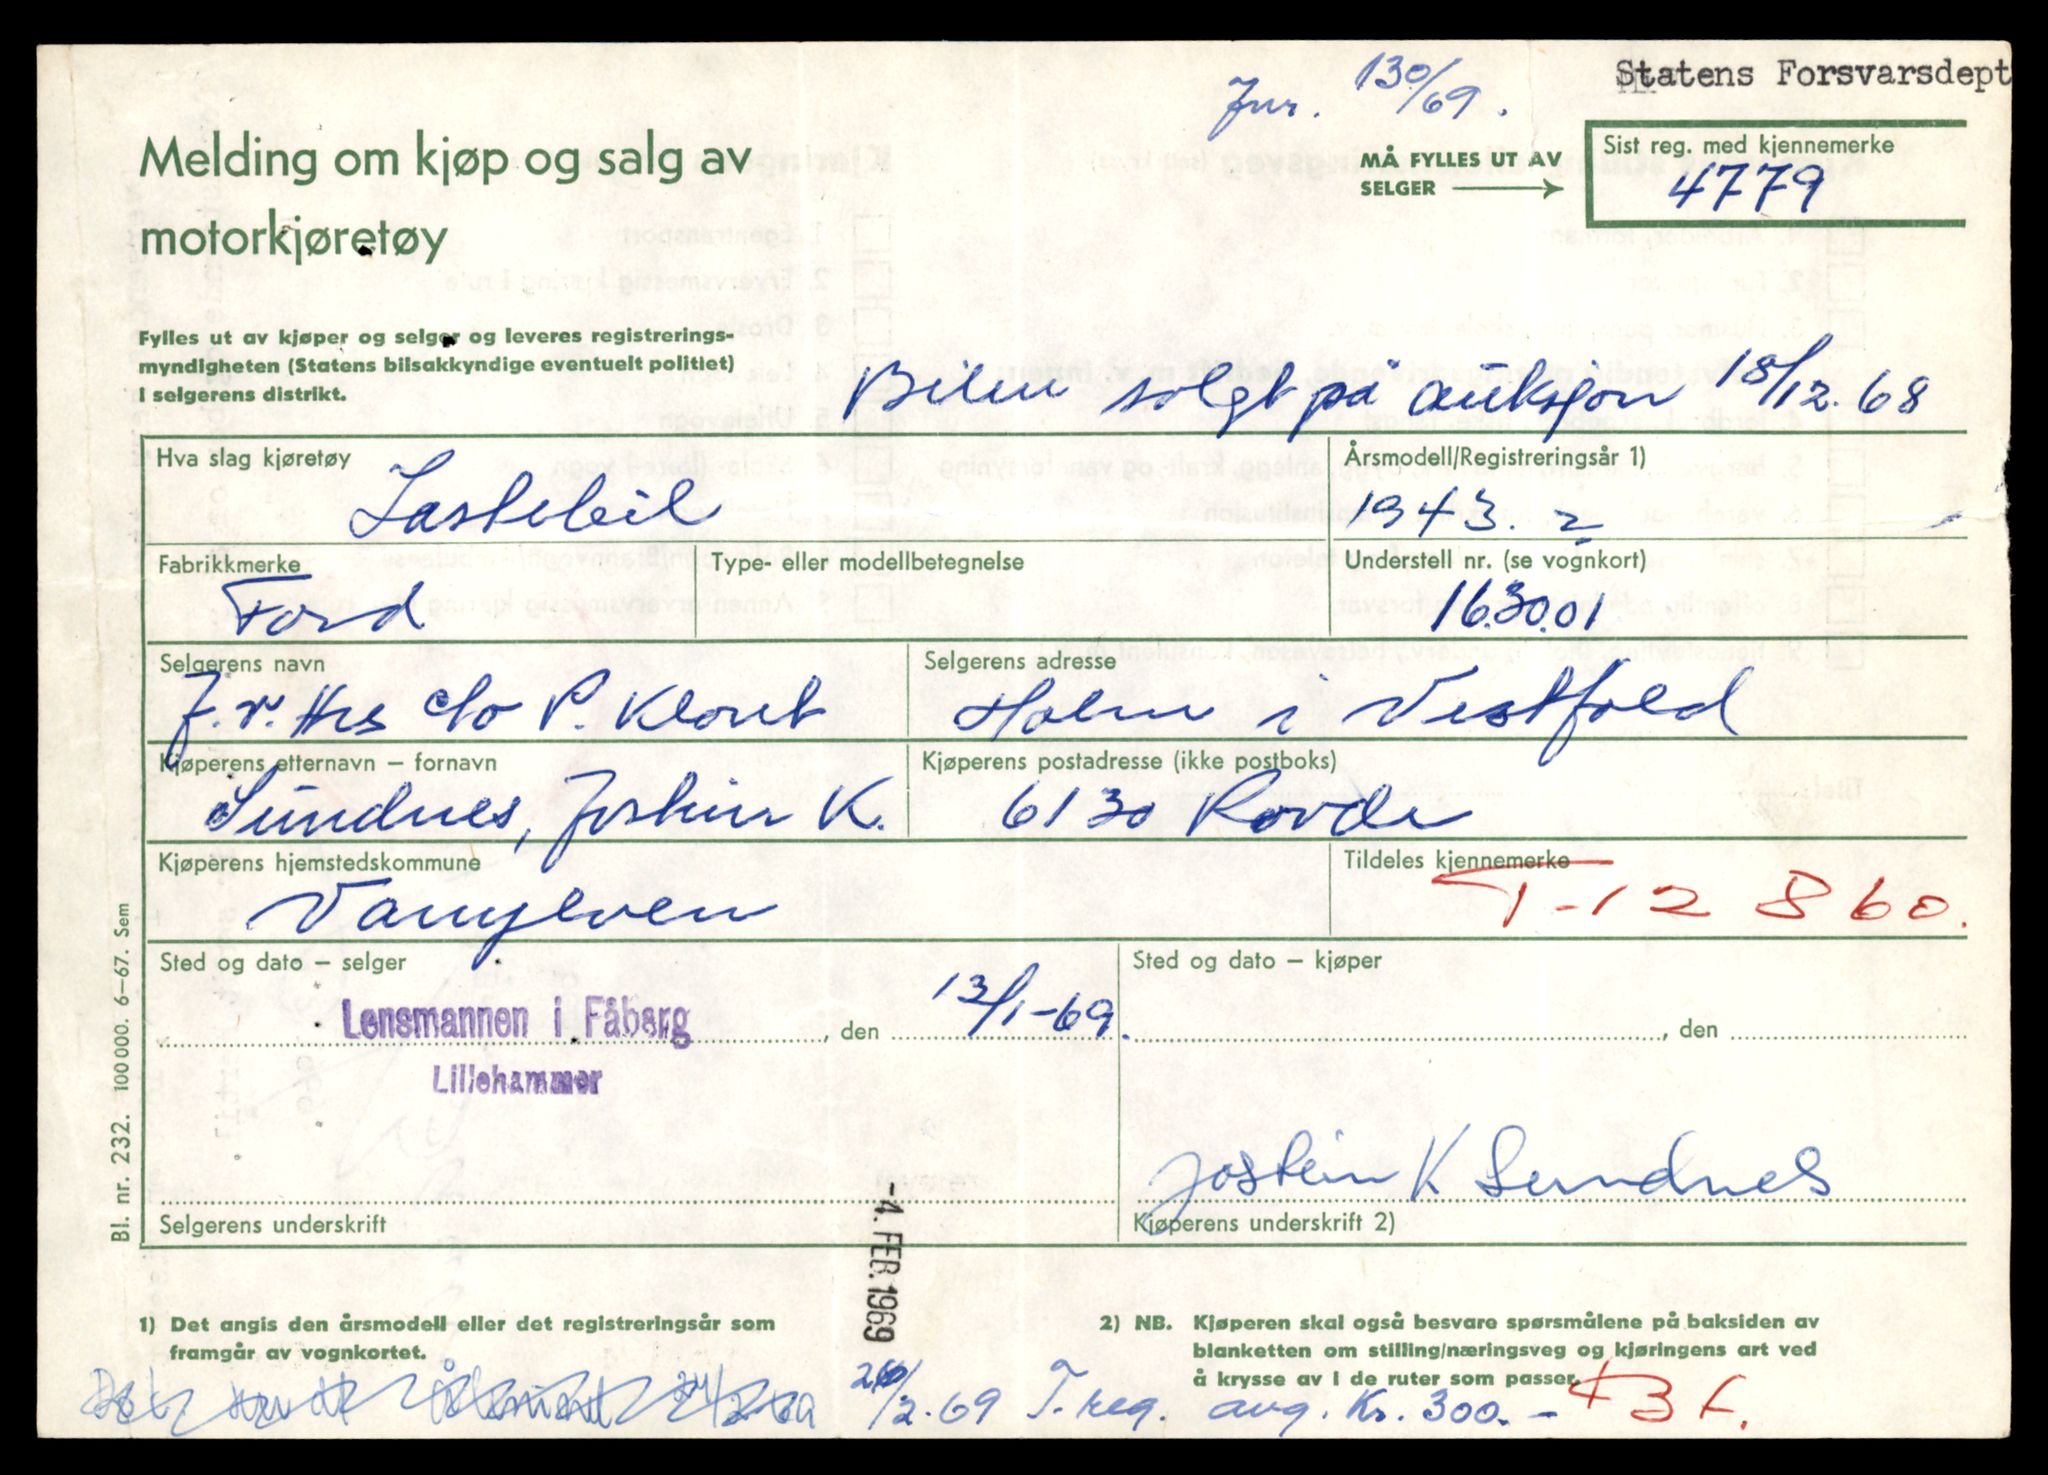 Jnr. 130/69.
Statens Forsvarsdept
Melding om kjøp og salg av
motorkjøretøy
MÅ FYLLES UT AV
SELGER
Sist reg. med kjennemerke
4779
Fylles ut av kjøper og selger og leveres registrerings-
myndigheten (Statens bilsakkyndige eventuelt politiet)
i selgerens distrikt.
Bilen solgt på auksjon 18/12.68
Hva slag kjøretøy
Lastebil
Årsmodell/Registreringsår 1)
1943.
Fabrikkmerke
Ford
Type- eller modellbetegnelse
Understell nr. (se vognkort)
163001
Selgerens navn
c/o P.
Selgerens adresse
Holm i Vestfold
Kjøperens etternavn – fornavn
Sundnes, Jostein K.
Kjøperens postadresse (ikke postboks)
6130 Rovde
Kjøperens hjemstedskommune
Vanylven
Tildeles kjennemerke
T-12860.
Sted og dato – selger
Lensmannen i Fåberg
Lillehammer
, den 13/1-69.
Sted og dato – kjøper
, den
Jostein K Sundnes
Selgerens underskrift
Kjøperens underskrift 2)
Bl. nr. 232. 100 000. 6–67. Sem
-4. FEB. 1969
1) Det angis den årsmodell eller det registreringsår som
framgår av vognkortet.
2) NB. Kjøperen skal også besvare spørsmålene på baksiden av
blanketten om stilling/næringsveg og kjøringens art ved
å krysse av i de ruter som passer.
/2.69 T. reg. avg. Kr. 300.-